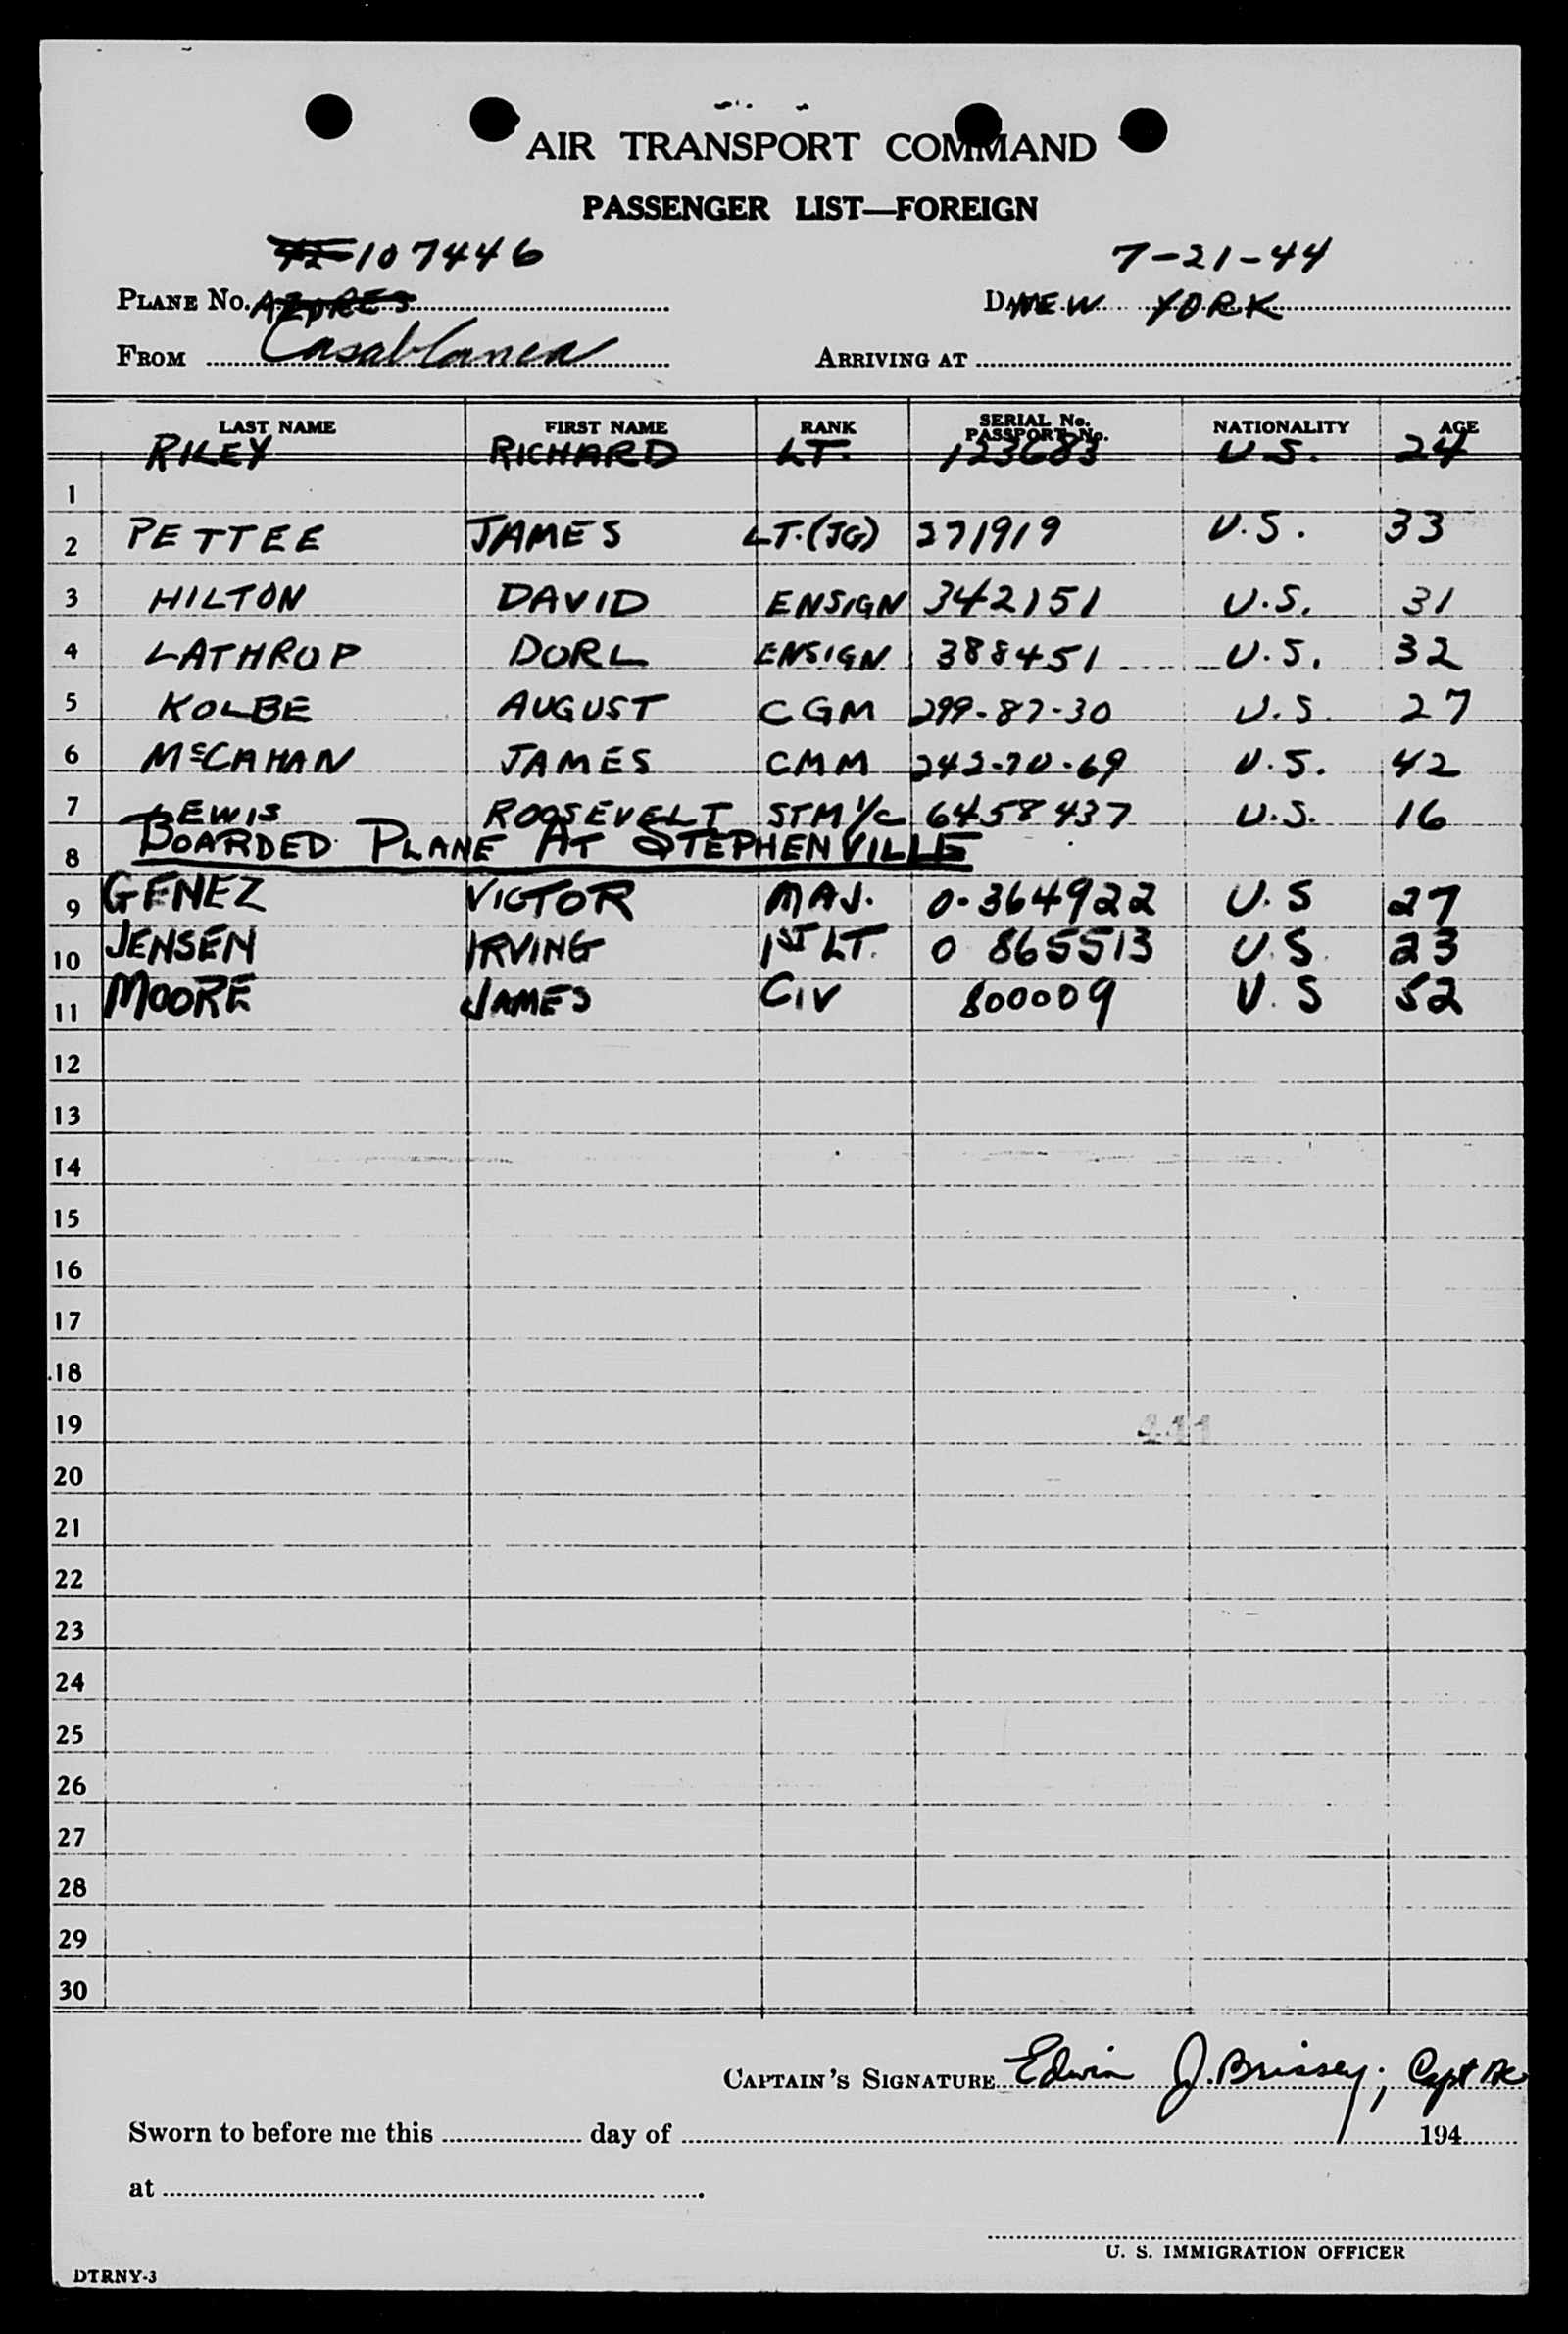 AIR TRANSPORT COMMAND
PASSENGER LIST—FOREIGN
107446 7-21-44
PLANE No. AZORES DATE NEW YORK
FROM Casablanca ARRIVING AT
LAST NAME FIRST NAME RANK SERIAL No. PASSPORT No. NATIONALITY AGE
RILEY RICHARD LT. 123683 U.S. 24
1
2 PETTEE JAMES LT.(JG) 271919 U.S. 33
3 HILTON DAVID ENSIGN 342151 U.S. 31
4 LATHROP DORL ENSIGN 388451 U.S. 32
5 KOLBE AUGUST CGM 299-87-30 U.S. 27
6 McCAHAN JAMES CMM 242-70-69 U.S. 42
7 LEWIS ROOSEVELT STM 1/C 6458437 U.S. 16
8 BOARDED PLANE AT STEPHENVILLE
9 GENEZ VICTOR MAJ. 0-364922 U.S 27
10 JENSEN IRVING 1ST LT. 0 865513 U.S. 23
11 MOORE JAMES CIV 800009 U.S 52
12
13
14
15
16
17
18
19 441
20
21
22
23
24
25
26
27
28
29
30
CAPTAIN'S SIGNATURE Edwin J. Brissey; Capt AC
Sworn to before me this day of 194
at
U. S. IMMIGRATION OFFICER
DTRNY-3